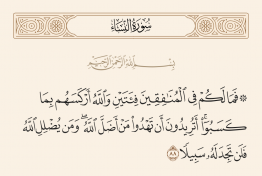 سُورَةُ النِّسَاءِ
بِسْمِ اللَّهِ الرَّحْمَٰنِ الرَّحِيمِ
۞ فَمَا لَكُمْ فِي الْمُنَافِقِينَ فِئَتَيْنِ وَاللَّهُ أَرْكَسَهُم بِمَا
كَسَبُوا ۚ أَتُرِيدُونَ أَن تَهْدُوا مَنْ أَضَلَّ اللَّهُ ۖ وَمَن يُضْلِلِ اللَّهُ
فَلَن تَجِدَ لَهُ سَبِيلًا ٨٨